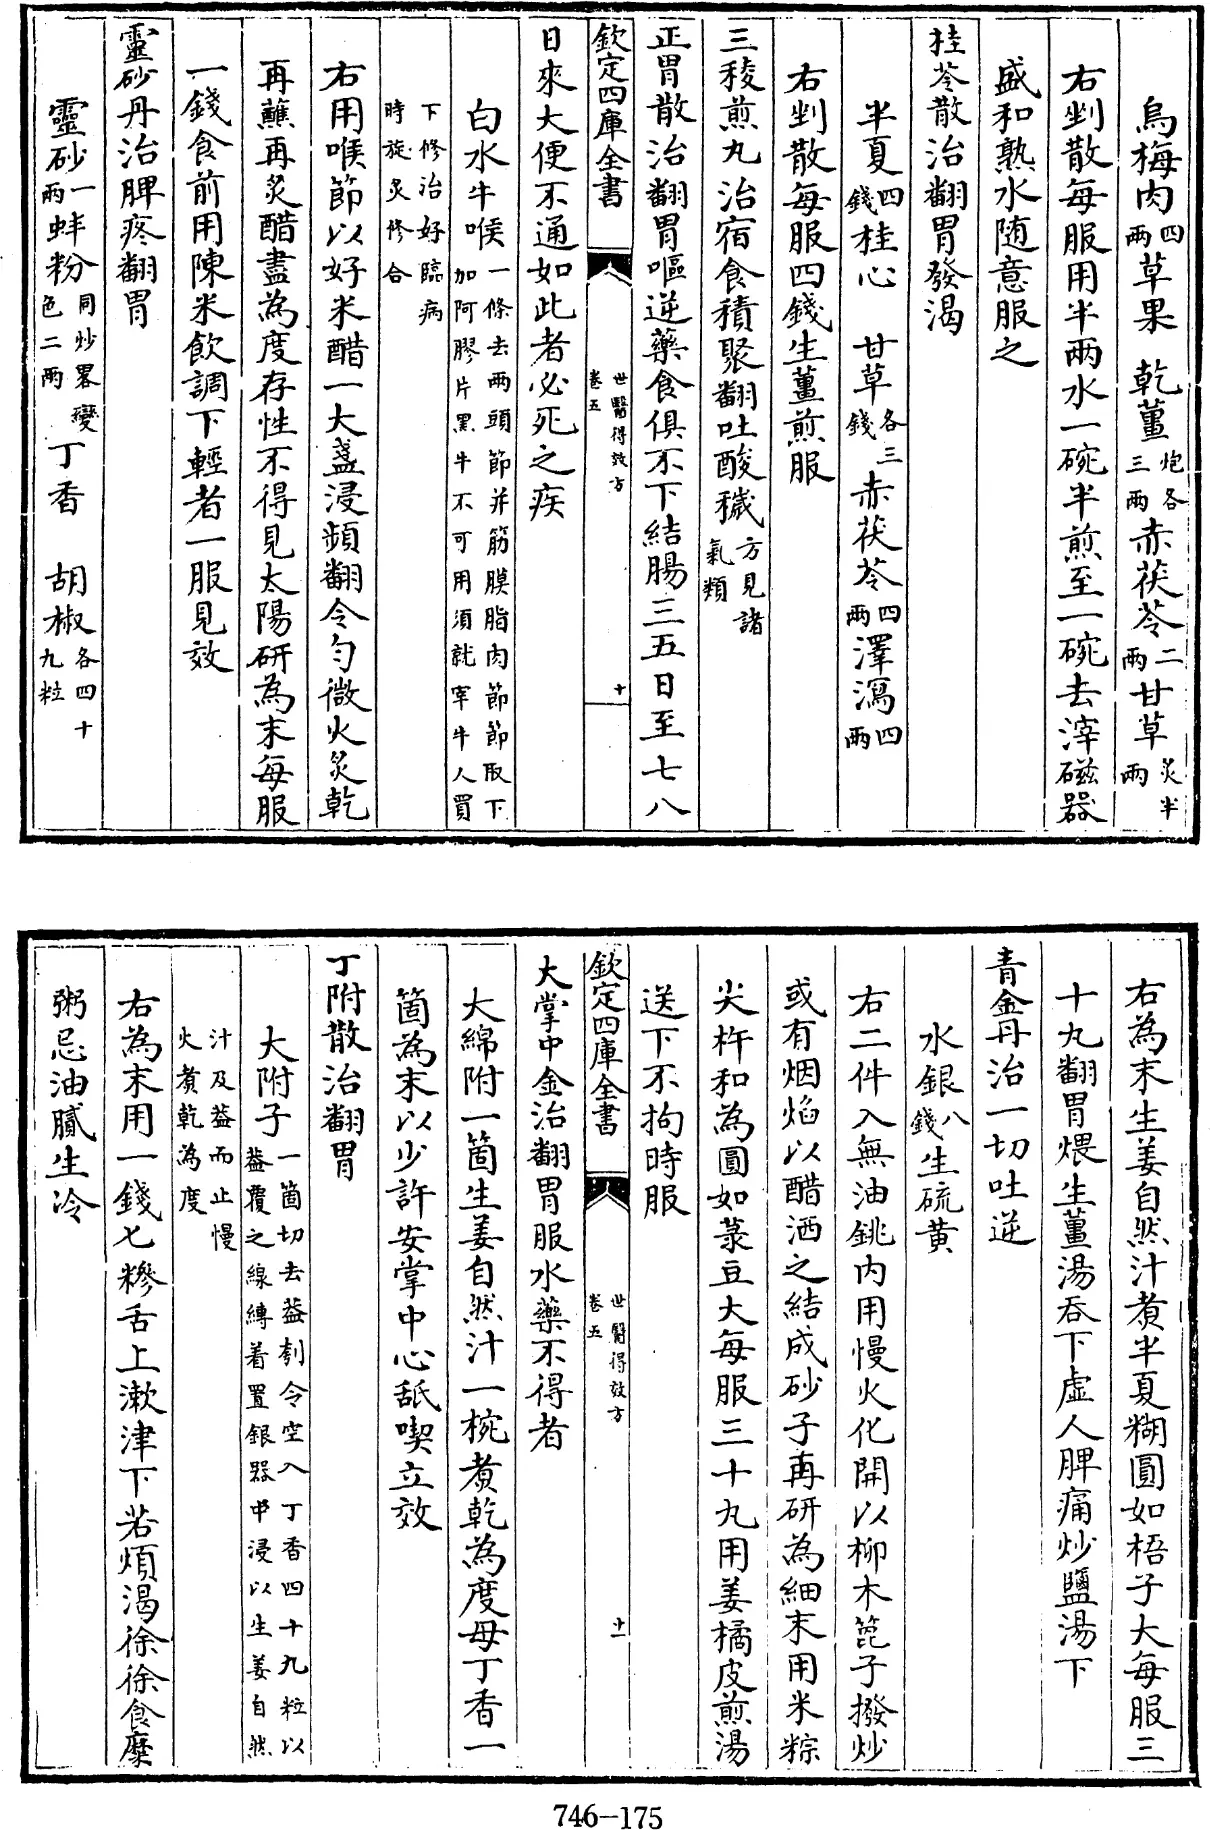 烏梅肉四兩草果 乾薑炮各三兩赤茯苓二兩甘草炙半兩
右剉散每服用半兩水一碗半煎至一碗去滓磁器
盛和熟水随意服之
桂苓散治翻胃發渴
半夏四錢桂心 甘草各三錢赤茯苓四兩澤瀉四兩
右剉散每服四錢生薑煎服
三稜煎丸治宿食積聚翻吐酸穢方見諸氣類
正胃散治翻胃嘔逆藥食俱不下結腸三五日至七八
欽定四庫全書 世醫得效方卷五 十
日來大便不通如此者必死之疾
白水牛喉一條去兩頭節并筋膜脂肉節節取下加阿膠片黑牛不可用須就宰牛人買
下修治好臨病時旋炙修合
右用喉節以好米醋一大盞浸頻翻令勻微火炙乾
再蘸再炙醋盡為度存性不得見太陽研為末每服
一錢食前用陳米飲調下輕者一服見效
靈砂丹治脾疼翻胃
靈砂一兩蚌粉同炒畧變色二兩丁香 胡椒各四十九粒
右為末生姜自然汁煮半夏糊圓如梧子大每服三
十丸翻胃煨生薑湯吞下虛人脾痛炒鹽湯下
青金丹治一切吐逆
水銀八錢生硫黄
右二件入無油銚内用慢火化開以柳木篦子撥炒
或有烟焰以醋洒之結成砂子再研為細末用米粽
尖杵和為圓如菉豆大每服三十丸用姜橘皮煎湯
送下不拘時服
欽定四庫全書 世醫得效方卷五 十一
大掌中金治翻胃服水藥不得者
大綿附一箇生姜自然汁一椀煮乾為度母丁香一
箇為末以少許安掌中心舐喫立效
丁附散治翻胃
大附子一箇切去葢刳令空入丁香四十九粒以葢覆之線縛着置銀器中浸以生姜自然
汁及葢而止慢火煮乾為度
右為末用一錢匕糝舌上漱津下若煩渴徐徐食糜
粥忌油膩生冷
746-175